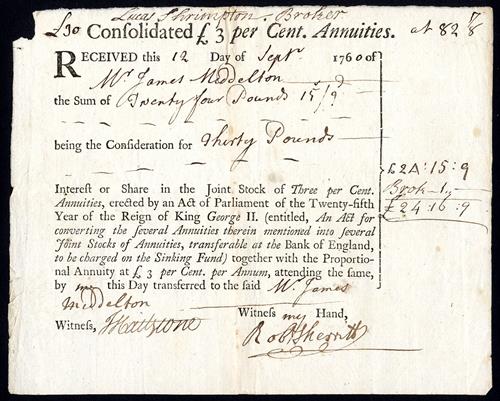 Lucas Shrimpton. Broker
£30 Consolidated £ 3 per Cent. Annuities. at 82 7/8
RECEIVED this 12 Day of Sept.r 1760 of
Mr. James Middelton
the Sum of Twenty four Pounds 15s/9d
being the Consideration for Thirty Pounds
£24:15:9
Brok - 1,,
£24:16:9
Intereſt or Share in the Joint Stock of Three per Cent.
Annuities, erected by an Act of Parliament of the Twenty-fifth
Year of the Reign of King George II. (entitled, An Act for
converting the ſeveral Annuities therein mentioned into ſeveral
Joint Stocks of Annuities, transferable at the Bank of England,
to be charged on the Sinking Fund) together with the Proportio-
nal Annuity at £ 3 per Cent. per Annum, attending the ſame,
by me this Day transferred to the ſaid Mr. James
Middelton
Witneſs my Hand,
Witneſs,
Robt Sherritt